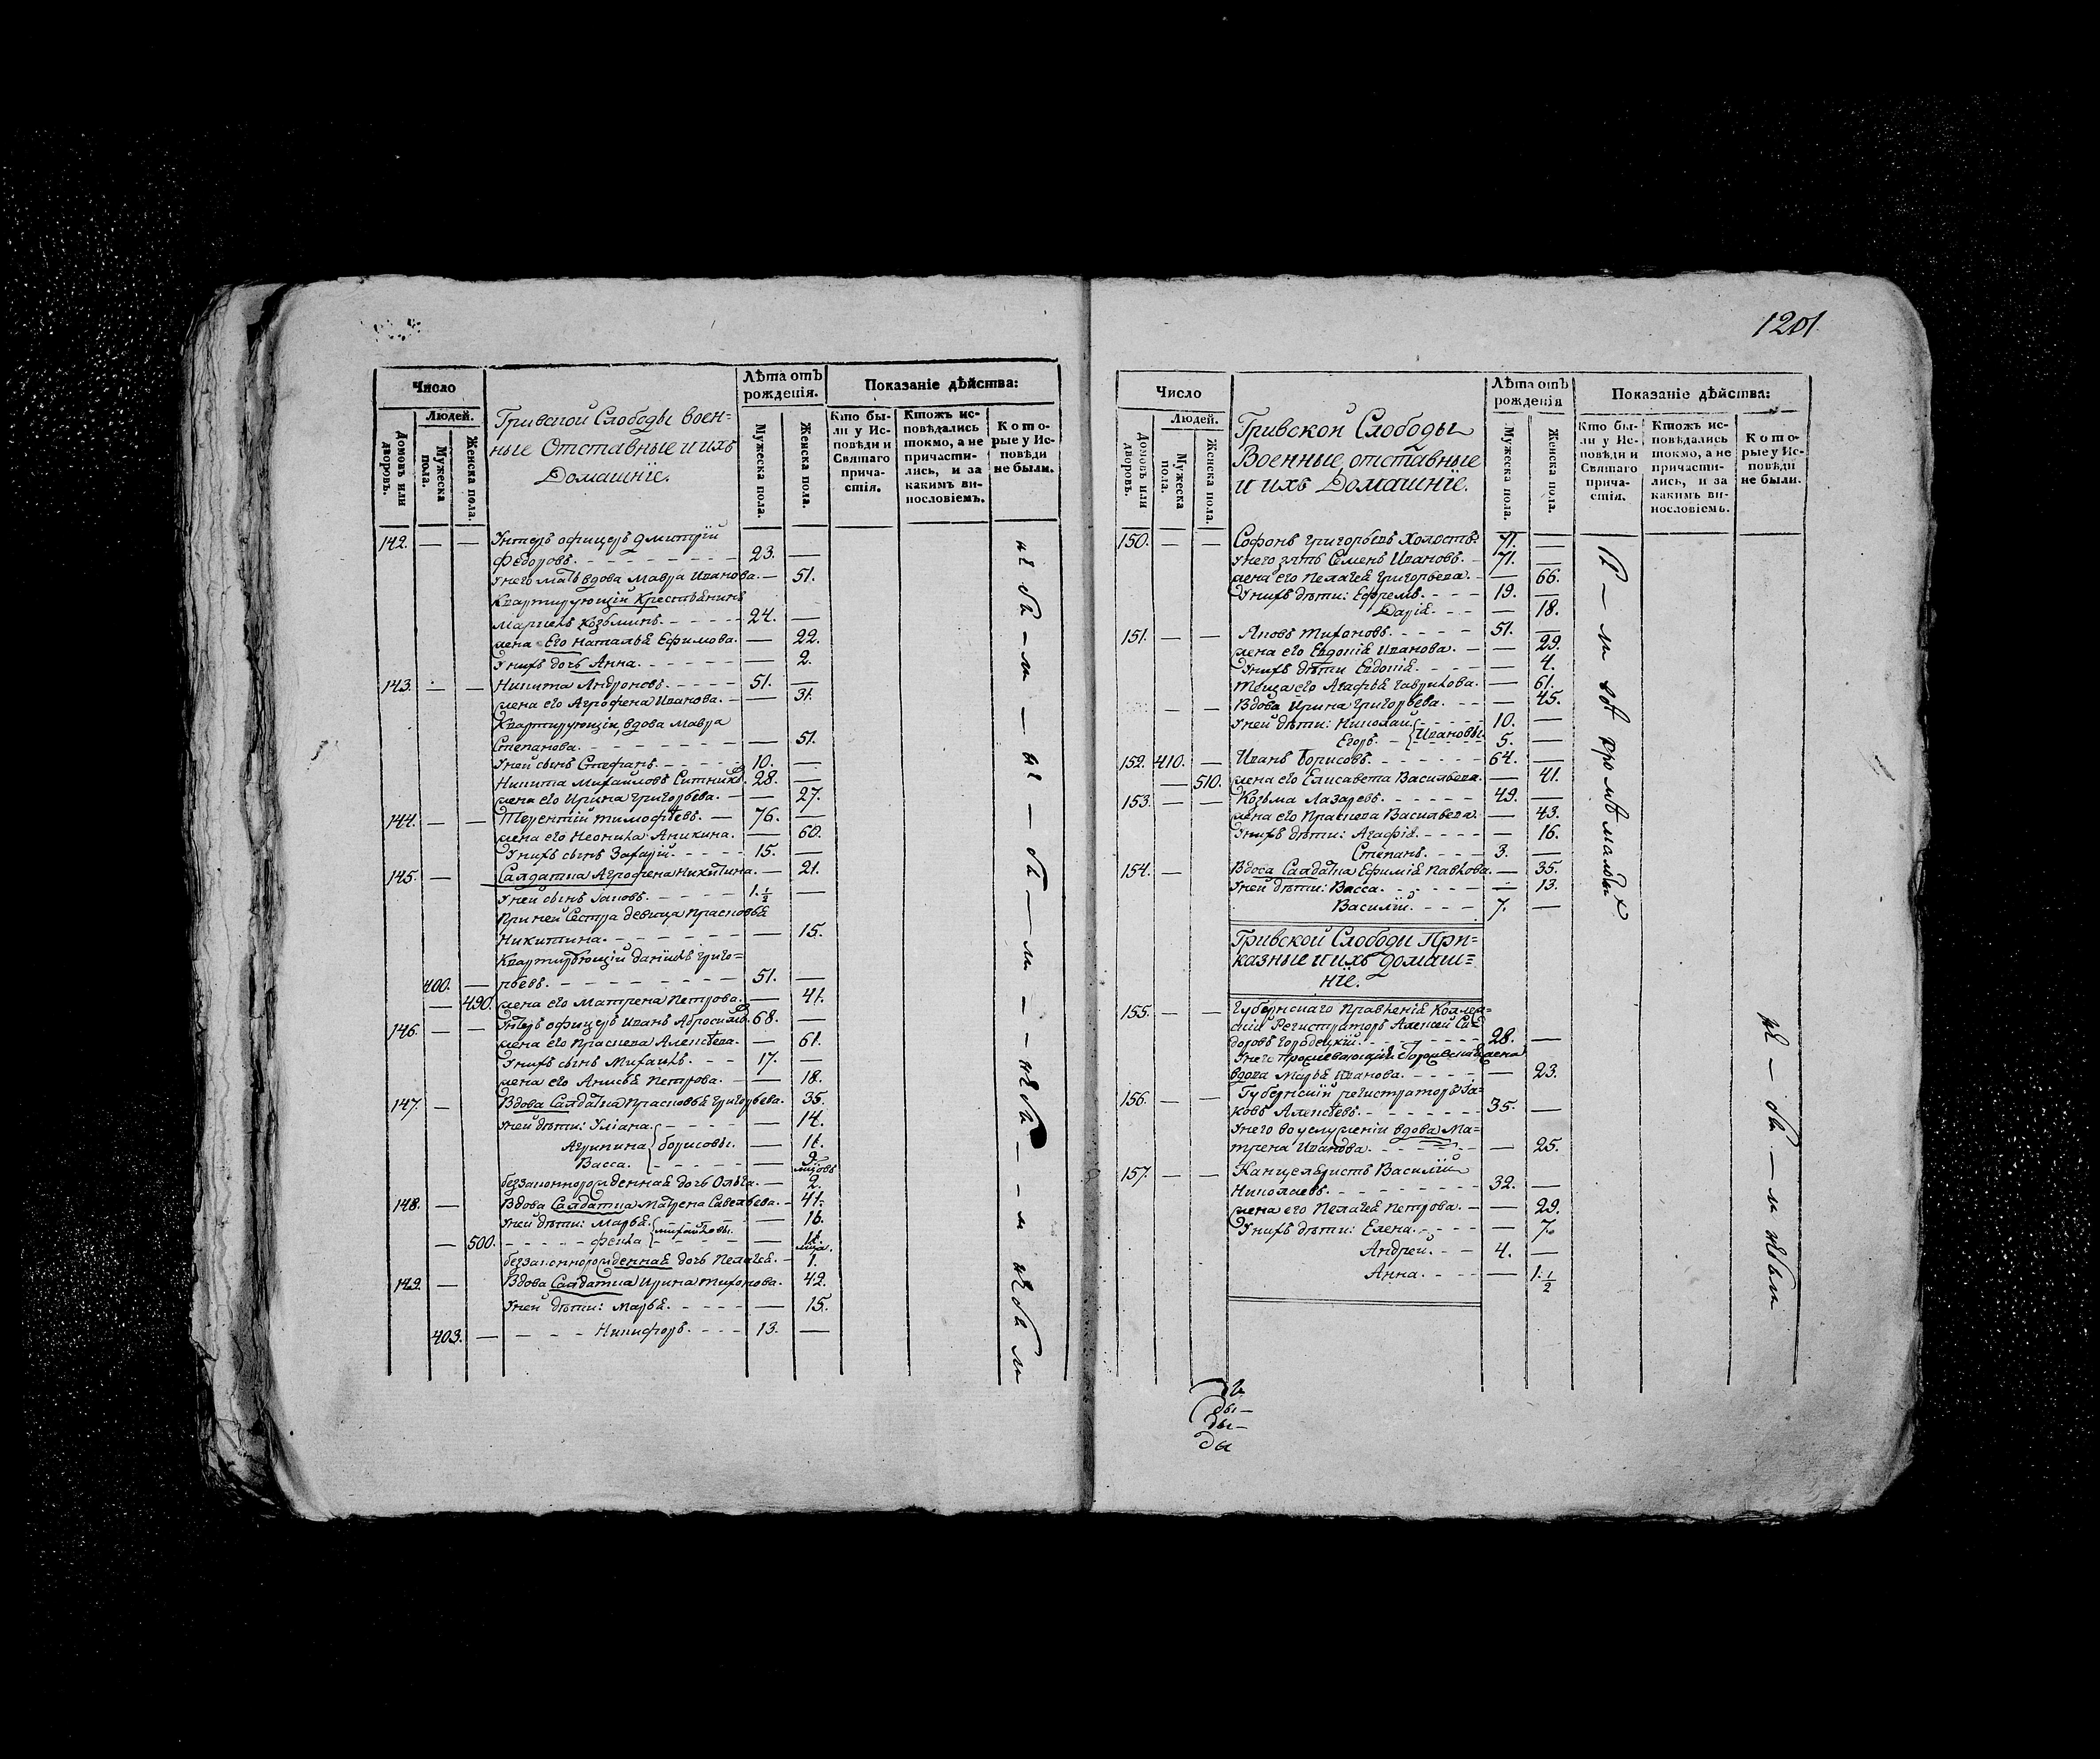 Число
Людей.
Домовъ или дворовъ.
Мужеска пола.
Женска пола.
Гривской Слободы воен=
ные Отставные и ихъ
Домашнїе.
Лѣта отъ рожденія.
Мужеска пола.
Женска пола.
Показаніе дѣйства:
Кто бы-
ли у Ис-
повѣди и
Святаго
прича-
стія.
Ктожъ ис-
повѣдались
токмо, а не
причасти-
лись, и за
какимъ ви-
нословіемъ.
Кото-
рые у Ис-
повѣди
не были.
142. — — Унтеръ офицеръ Дмитрїй
Федоровъ. 23. —
У него мать вдова Мавра Иванова. — 51.
Квартирующїй Крестьянинъ
Козьминъ. 24. —
жена Его Наталья Ефимова. — 22.
У нихъ дочь Анна. — 2.
143. — — Никита Андроновъ. 51. —
жена его Агрофена Иванова. — 31.
Квартирующїи, вдова Мавра
Степанова. — 51.
У ней сынъ Стефанъ. 10. —
Никита Михайловъ Ситниковъ. 28. —
жена его Ирина Григорьева. — 27.
144. — — Терентїй Тимофѣевъ. 76. —
жена его Неонила Аникина. — 60.
У нихъ сынъ Захарїй. 15. —
145. — Салдатка Агрофена Никитина. — 21.
У ней сынъ Іаковъ. 1.½ —
При ней Сестра девица Прасковья
Никитина. — 15.
Квартирующїй Данїилъ Григо=
400. — рьевъ. 51. —
— 490. жена его Матрена Петрова. — 41.
146. — — Унтеръ офицеръ Иванъ Абросимовъ. 68. —
жена его Праскева Алексѣева. — 61.
У нихъ сынъ Михаилъ. 17. —
жена его Анисья Петрова. — 18.
147. — Вдова Салдатка Прасковья Григорьева. 35.
У ней дѣти: Улїана. — 14.
Агрипина борисовы. — 11.
Васса. — 9.
беззаконнорожденная дочь Ольга. — 2.
148. — Вдова Салдатка Матрена Савельева. — 41.
У ней дѣти: Марья. — 16.
— 500. Фекла Михайловы. — 11.
беззаконнорожденная дочь Пелагея. — 1.
149. — Вдова Салдатка Ирина Тихонова. 42.
У ней дѣти: Марья. — 15.
403. — Никифоръ. 13. —
не бы — ли — не — бы — ли — — не бы — — ли не были
1201
Число
Людей.
Домовъ или дворовъ.
Мужеска пола.
Женска пола.
Гривской Слободы
Военные отставные
и ихъ Домашнїе.
Лѣта отъ рожденія
Мужеска пола.
Женска пола.
Показаніе дѣйства:
Кто бы-
ли у Ис-
повѣди и
Святаго
прича-
стія.
Ктожъ ис-
повѣдались
токмо, а не
причасти-
лись, и за
какимъ ви-
нословіемъ.
Кото-
рые у Ис-
повѣди
не были.
150. — — Софонъ Григорьевъ Холостъ. 71. —
У него зять Семенъ Ивановъ. 71. —
жена его Пелагея Григорьева. — 66.
У нихъ дѣти: Ефремъ. 19. —
Дарїя. — 18.
151. — — Тихоновъ. 51. —
жена его Евдокїя Иванова. — 29.
У нихъ дѣти Евдокїя. — 4.
Теща его Агафья Гаврилова. — 61.
— — Вдова Ирина Григорьева. — 45.
У ней дѣти: Николай. 10. —
Егоръ. Ивановы. 5. —
152. 410. — Иванъ Борисовъ. 64. —
— 510. жена его Елисавета Васильева. — 41.
153. — — Козьма Лазаревъ. 49. —
жена его Праскева Васильева. — 43.
У нихъ дѣти: Агафїя. — 16.
Степанъ. 3. —
154. — Вдова Салдатка Ефимїя Павлова. — 35.
У ней дѣти: Васса. — 13.
Василїй. 7. —
Гривской Слободы При=
казные и ихъ домаш=
нїе.
155. — — Губернскаго Правленїя Коллеж=
скїй Регистраторъ Алексей Си=
доровъ Городецкїй. 28. —
У него
вдова Марья Иванова. — 23.
156. — — Губернскїй регистраторъ Іа=
ковъ Алексѣевъ. 35. —
У него во услуженїи вдова Ма=
трена Иванова. — 25.
157. — — Канцеляристъ Василїй
Николаевъ. 32. —
жена его Пелагея Петрова. — 29.
У нихъ дѣти: Елена. — 7.
Андрей. 4. —
Анна. — 1.½
бы — ли всѣ кромѣ малыхъ
не — бы — ли не были
ды —
ды —
ды